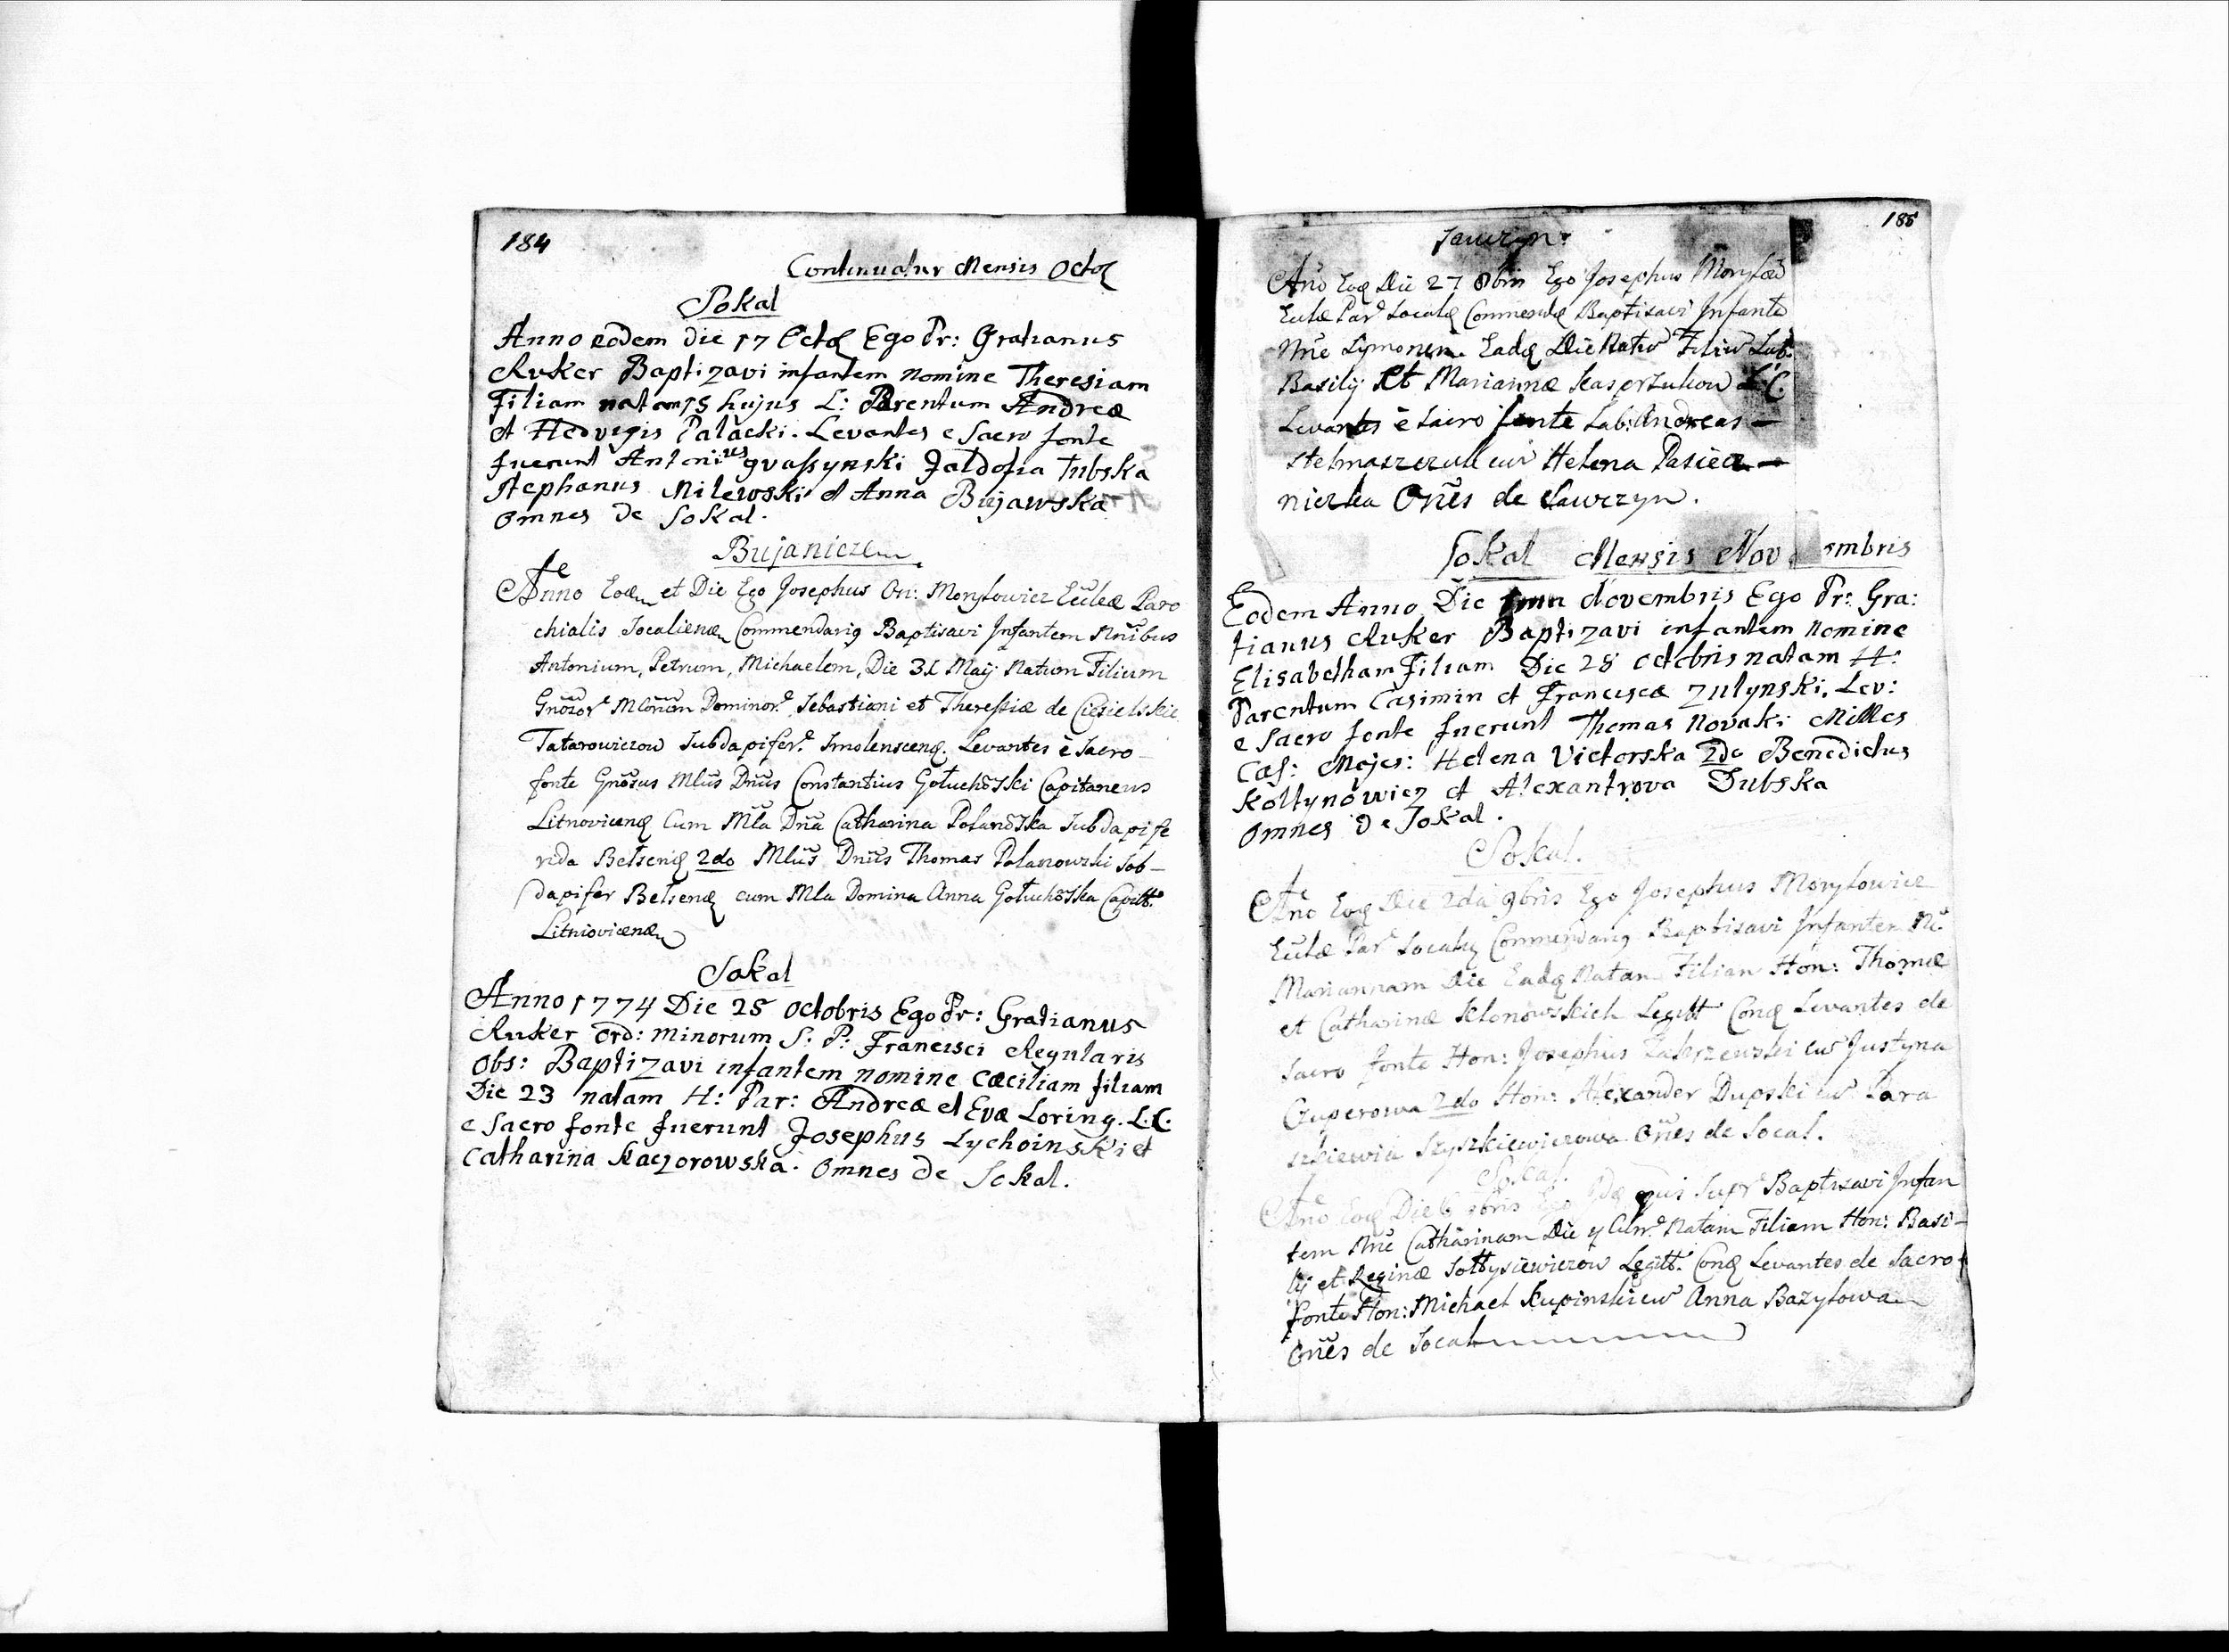 184
Continuatur Mensis Octo
Sokal
Anno eodem Die 17 Octo Ego Pr: Gratianus
Ruker Baptizavi infantem nomine Theresiam
Filiam natam 15 hujus L: Parentum Andreæ
et Hedvigis Palacki. Levantes e Sacro fonte
fuerunt Antonius Jaldofia Tubska
Stephanus Milewski et Anna Bujawska
omnes de Sokal.
Bujanicze
Anno Eodem et Die Ego Josephus On: Moryłowicz Ecclæ Paro
chialis Socaliens Commendarig Baptisavi Infantem Nnibus
Antonium, Petrum, Michaelem, Die 31 Maij Natum Filium
Dominor. Sebastiani et Theressiæ de Ciesielskie
Tatarowiczow Subdapifer. Smolenscen. Levantes è Sacro
fonte Gnosus Mlus Dnus Constantius Gołuchoski Capitaneus
Litnovicen Cum Mla Dna Catharina Polanoska Subdapife
rida Belsen 2do Mlus Dnus Thomas Polanowski Sob-
dapifer Belsen cum Mla Domina Anna Gołuchoska Capitt.
Litniovicen
Sokal
Anno 1774 Die 25 Octobris Ego Pr: Gratianus
Ruker Ord: Minorum S: P: Francisci Regularis
Obs: Baptizavi infantem nomine Cæciliam filiam
Die 23 natam H: Par: Andreæ et Evæ Loring. L.C.
e Sacro fonte fuerunt Josephus Lychoinski et
Catharina Kaczorowska. Omnes de Sokal.
185
Sawczyn.
Ano Eoq Die 27 8bris Ego Josephus Moryłow
Eccle Par. Socal Commend Baptisavi Infante
Nne Symonem Eadq Die Natu Filiu Lab.
Basilij Et Mariannæ Kasprzukow L.C.
Levantes è Sacro fonte Lab: Andreas
Stelmaszczuk cur Helena Pasiecz
niczka Ones de Sawczyn.
Sokal Mensis Novembris
Eodem Anno Die Novembris Ego Pr: Gra:
tianus Ruker Baptizavi infantem nomine
Elisabetham Filiam Die 28 octobris natam H:
Parentum Casimiri et Franciscæ Zulynski. Lev:
e Sacro fonte fuerunt Thomas Novaki Milles
Cæs: Majes: Helena Victorska 2do Benedictus
Kołtynówicz et Alexantrova Dubska
omnes de Sokal.
Sokal.
Ano Eoq Die 2da 9bris Ego Josephus Moryłowicz
Eccle Par. Socal Commendarig Baptisavi Infantem N.
Mariannam Die Eadq Natam Filiam Hon: Thomæ
et Catharinæ Klonowskich Legitt Conq Levantes de
Sacro fonte Hon: Josephus Zakrzewski cu Justyna
Cuperowa 2do Hon: Alexander Dupski cu Para
szkiewia Szyszkiewiczowa Ones de Socal.
Socal.
Ano Eoq Die 6 9bris Ego qui Supr Baptisavi Infan
tem Nne Catharinam Die Natam Filiam Hon: Basi-
lij et Reginæ Sołtysiewiczow Legitt. Conq Levantes de Sacro
fonte Hon: Michael Kupinski cu Anna Bazyłowa
Ones de Socal